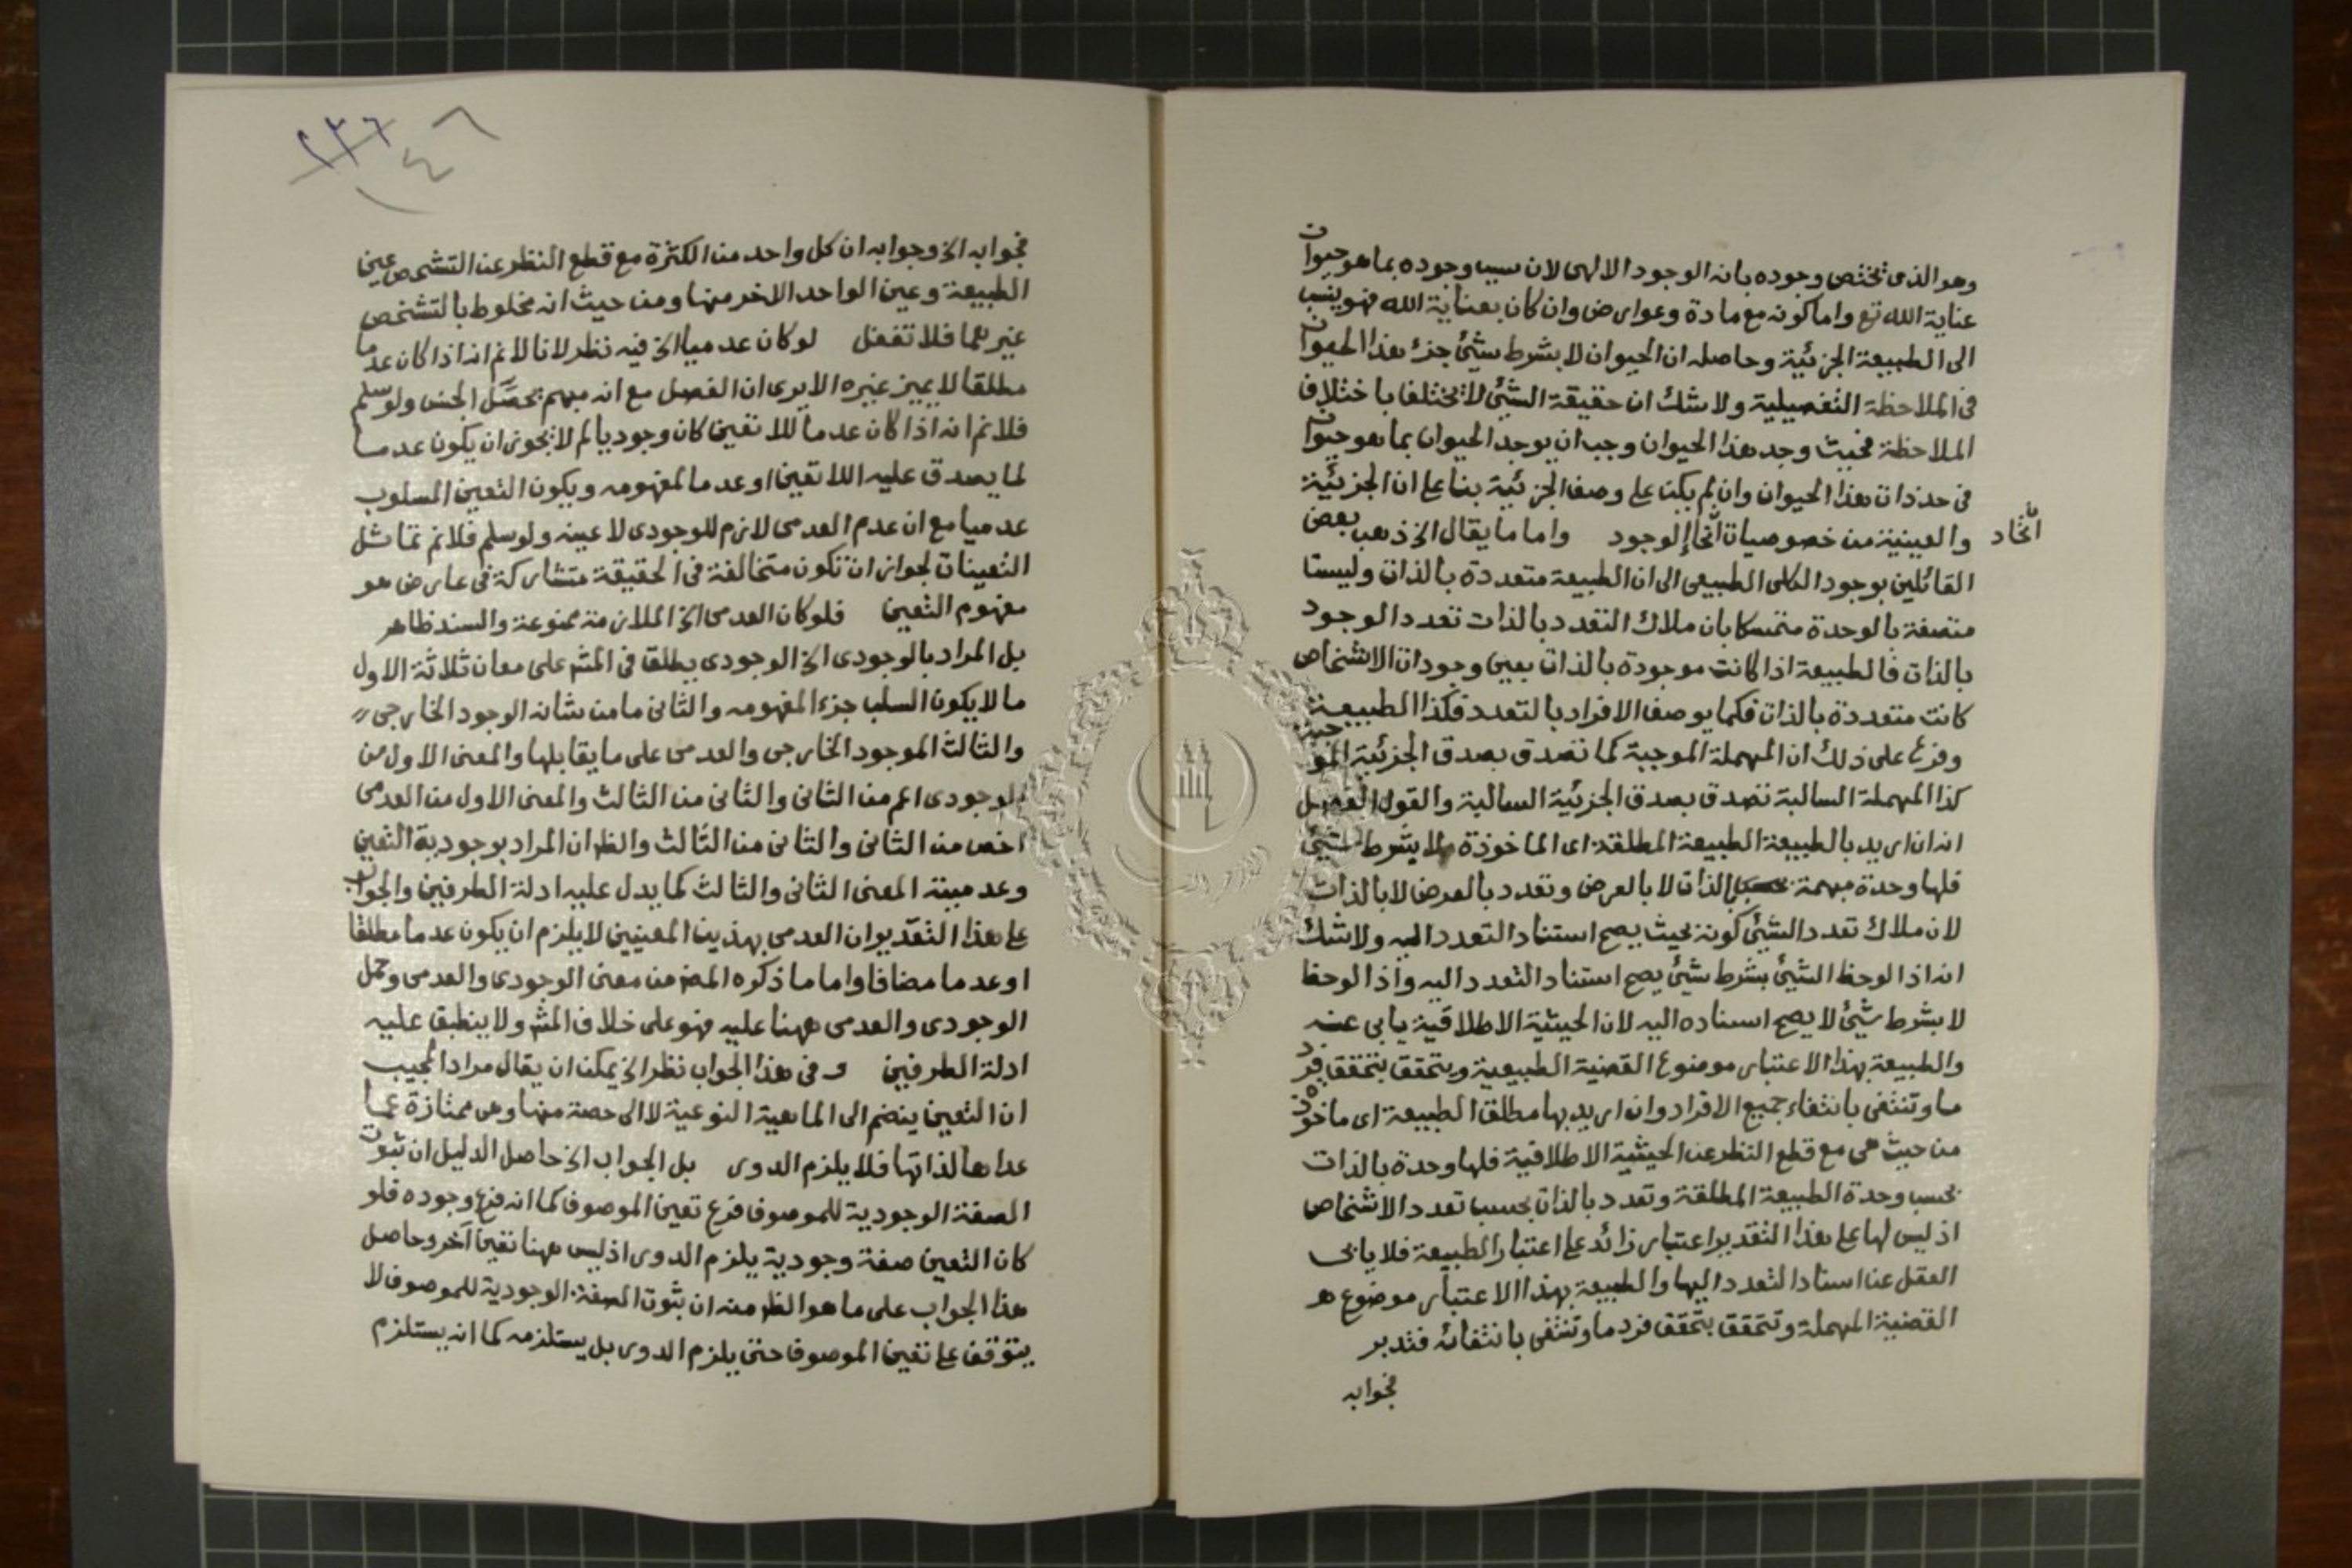 وهو الذى يختص وجوده بانه الوجود الالهى لان سبب وجوده بما هو حيوان
عناية الله تع واما كونه مع مادة وعوارض وان كان بعناية الله فهو ينسب
الى الطبيعة الجزئية وحاصله ان الحيوان لا بشرط شئ جزء هذا الحيوان
فى الملاحظة التفصيلية ولا شك ان حقيقة الشئ لا تختلف باختلاف
الملاحظة فحيث وجد هذا الحيوان وجب ان يوجد الحيوان بما هو حيوان
فى حد ذات هذا الحيوان وان لم يكن على وصف الجزئية بنا على ان الجزئية
والعينية من خصوصيات اتحاد الوجود واما ما يقال الخ ذهب بعض
اتحاد
القائلين بوجود الكلى الطبيعى الى ان الطبيعة متعددة بالذات وليست
متصفة بالوحدة متمسكا بان ملاك التعدد بالذات تعدد الوجود
بالذات فالطبيعة اذا كانت موجودة بالذات بعين وجودات الاشخاص
كانت متعددة بالذات فكما يوصف الافراد بالتعدد فكذا الطبيعة
وفرع على ذلك ان المهملة الموجبة كما تصدق بصدق الجزئية الموجبة
كذا المهملة السالبة تصدق بصدق الجزئية السالبة والقول الفصل
انه ان اريد بالطبيعة الطبيعة المطلقة اى الماخوذة لا بشرط شئ
فلها وحدة مبهمة بالذات لا بالعرض وتعدد بالعرض لا بالذات
لان ملاك تعدد الشئ كونه بحيث يصح استناد التعدد اليه ولا شك
انه اذا لوحظ الشئ بشرط شئ يصح استناد التعدد اليه واذا لوحظ
لا بشرط شئ لا يصح اسناده اليه لان الحيثية الاطلاقية يابى عنه
والطبيعة بهذا الاعتبار موضوع القضية الطبيعية ويتحقق بتحقق فرد
ما وتنتفى بانتفاء جميع الافراد وان اريد بها مطلق الطبيعة اى ماخوذه
من حيث هى مع قطع النظر عن الحيثية الاطلاقية فلها وحدة بالذات
بحسب وحدة الطبيعة المطلقة وتعدد بالذات بحسب تعدد الاشخاص
اذ ليس لها على هذا التقدير اعتبار زائد على اعتبار الطبيعة فلا يابى
العقل عن اسناد التعدد اليها والطبيعة بهذا الاعتبار موضوع
القضية المهملة وتتحقق بتحقق فرد ما وتنتفى بانتفائه فتدبر
فجوابه
٢٣٦
١٤٦
فجوابه الخ وجوابه ان كل واحد من الكثرة مع قطع النظر عن التشخص عين
الطبيعة وعين الواحد الاخر منها ومن حيث انه مخلوط بالتشخص
غيرهما فلا تغفل لو كان عدميا الخ فيه نظر لانا لا نم انه اذا كان عدما
مطلقا لا يميز غيره الا يرى ان الفصل مع انه مبهم يحصّل الجنس ولو سلم
فلا نم انه اذا كان عدما للا تعين كان وجوديا لم لا يجوز ان يكون عدما
لما يصدق عليه اللا تعين او عدما لمفهومه ويكون التعين المسلوب
عدميا مع ان عدم العدمى لازم للوجودى لا عينه ولو سلم فلا نم تماثل
التعينات لجواز ان تكون متخالفة فى الحقيقة متشاركة فى عارض هو
مفهوم التعين فلو كان العدمى الخ الملازمة ممنوعة والسند ظاهر
بل المراد بالوجودى الخ الوجودى يطلق فى المشه على معان ثلاثة الاول
ما لا يكون السلب جزء المفهومه والثانى ما من شانه الوجود الخارجى
والثالث الموجود الخارجى والعدمى على ما يقابلها والمعنى الاول من
الوجودى اعم من الثانى والثانى من الثالث والمعنى الاول من العدمى
اخص من الثانى والثانى من الثالث والظ ان المراد بوجودية التعين
وعدميته المعنى الثانى والثالث كما يدل عليه ادلة الطرفين والجواب
على هذا التقدير ان العدمى بهذين المعنيين لا يلزم ان يكون عدما مطلقا
او عدما مضافا واما ما ذكره المص من معنى الوجودى والعدمى وحمل
الوجودى والعدمى ههنا عليه فهو على خلاف المشه ولا ينطبق عليه
ادلة الطرفين و فى هذا الجواب نظر الخ يمكن ان يقال مراد المجيب
ان التعين ينضم الى الماهية النوعية لا الى حصة منها وهى ممتازة عما
عداها لذاتها فلا يلزم الدور بل الجواب الخ حاصل الدليل ان ثبوت
الصفة الوجودية للموصوف فرع تعين الموصوف كما انه فرع وجوده فلو
كان التعين صفة وجودية يلزم الدور اذ ليس ههنا تعين آخر وحاصل
هذا الجواب على ما هو الظ منه ان ثبوت الصفة الوجودية للموصوف لا
يتوقف على تعين الموصوف حتى يلزم الدور بل يستلزمه كما انه يستلزم